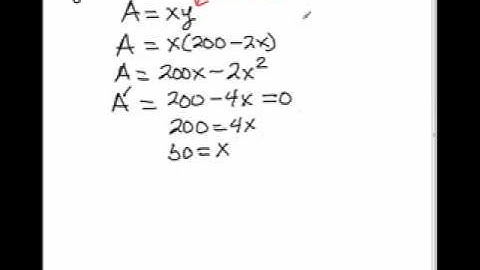 A = xy
A = x(200-2x)
A = 200x-2x²
A' = 200-4x=0
200=4x
50=x